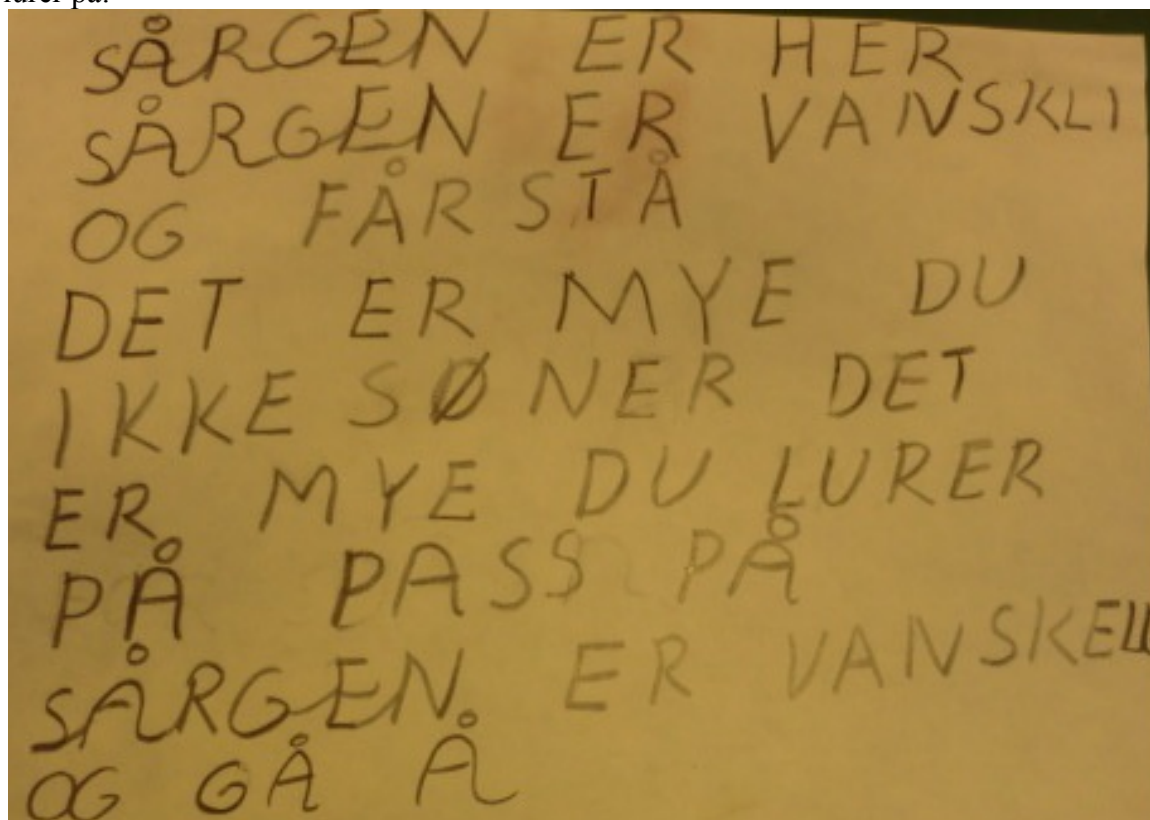 lurer på.
SÅRGEN ER HER
SÅRGEN ER VANSKLI
OG FÅRSTÅ
DET ER MYE DU
IKKE SØNER DET
ER MYE DU LURER
PÅ PASS PÅ
SÅRGEN ER VANSKELI
OG GÅ Å